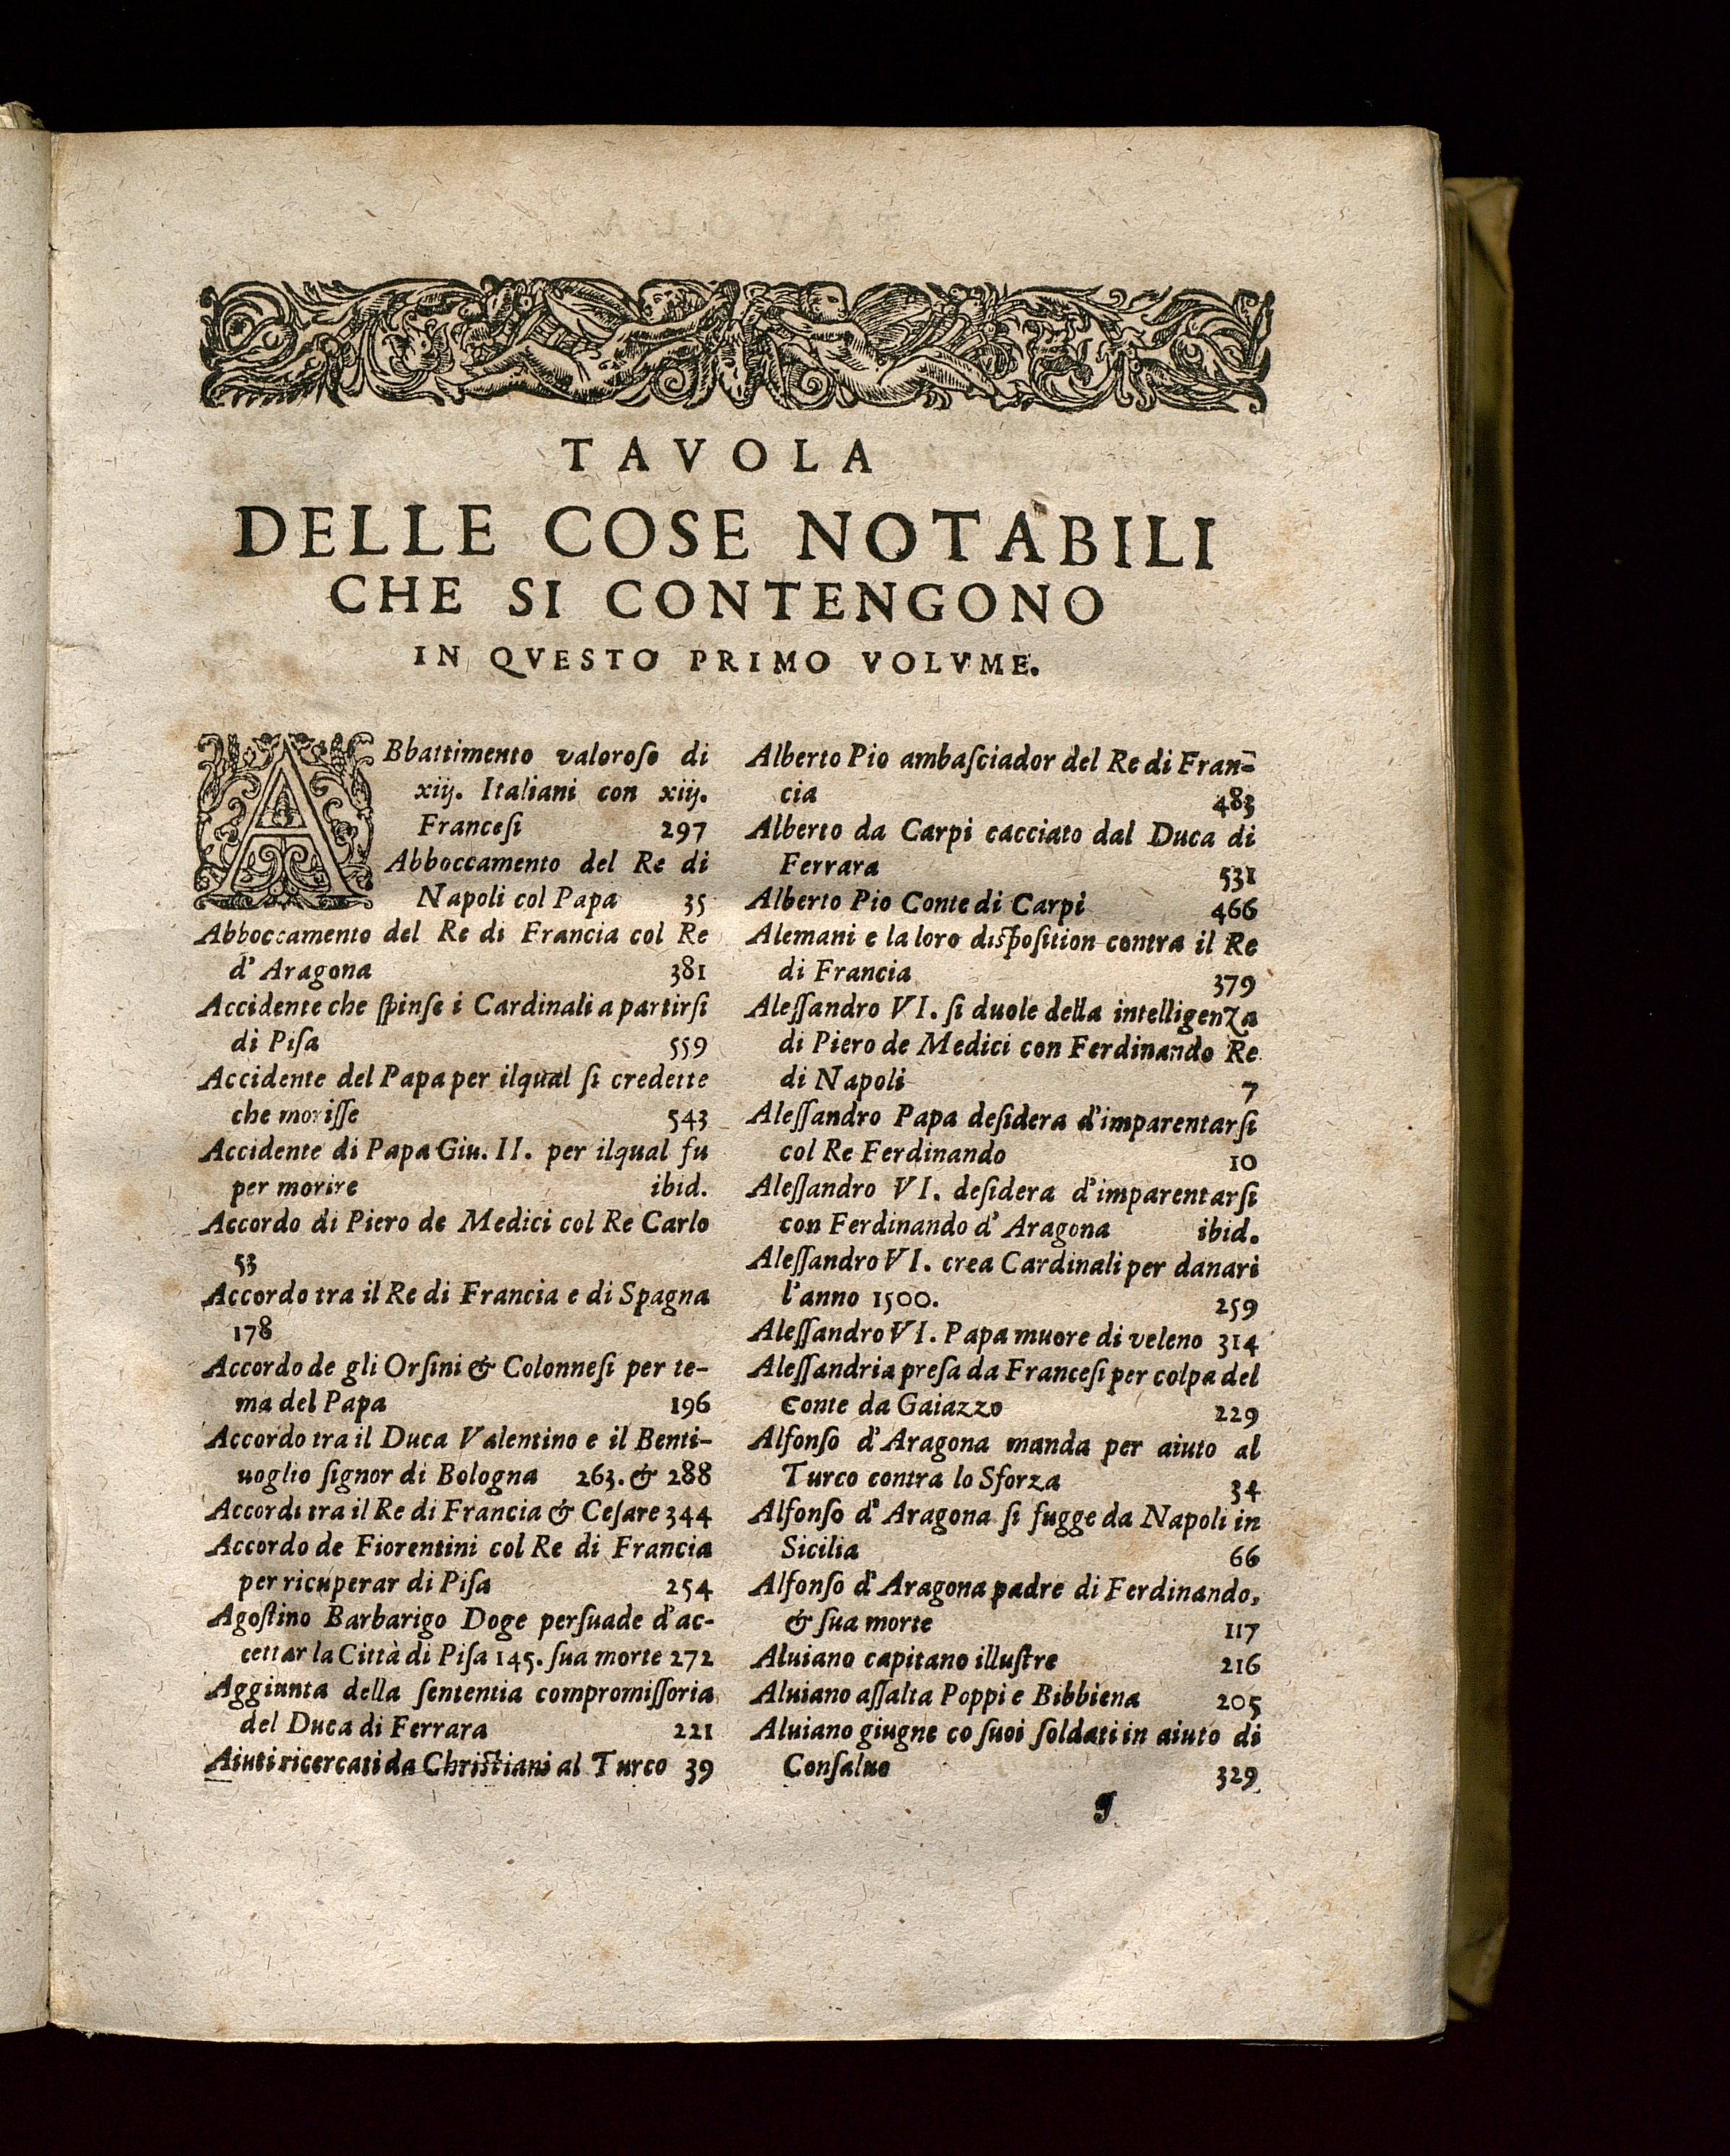 TAVOLA
DELLE COSE NOTABILI
CHE SI CONTENGONO
IN QVESTO PRIMO VOLVME.
ABbattimento valoroſo di
xiij. Italiani con xiij.
Franceſi 297
Abboccamento del Re di
Napoli col Papa 35
Abboccamento del Re di Francia col Re
d'Aragona 381
Accidente che ſpinſe i Cardinali a partirſi
di Piſa 559
Accidente del Papa per ilqual ſi credette
che moriſſe 543
Accidente di Papa Giu. II. per ilqual fu
per morire ibid.
Accordo di Piero de Medici col Re Carlo
53
Accordo tra il Re di Francia e di Spagna
178
Accordo de gli Orſini & Colonneſi per te-
ma del Papa 196
Accordo tra il Duca Valentino e il Benti-
uoglio ſignor di Bologna 263. & 288
Accordi tra il Re di Francia & Ceſare 344
Accordo de Fiorentini col Re di Francia
per ricuperar di Piſa 254
Agoſtino Barbarigo Doge perſuade d'ac-
cettar la Città di Piſa 145. ſua morte 272
Aggiunta della ſententia compromiſſoria
del Duca di Ferrara 221
Aiuti ricercati da Chriſtiani al Turco 39
Alberto Pio ambaſciador del Re di Fran-
cia 483
Alberto da Carpi cacciato dal Duca di
Ferrara 531
Alberto Pio Conte di Carpi 466
Alemani e la loro diſpoſition contra il Re
di Francia 379
Aleſſandro VI. ſi duole della intelligenza
di Piero de Medici con Ferdinando Re
di Napoli 7
Aleſſandro Papa deſidera d'imparentarſi
col Re Ferdinando 10
Aleſſandro VI. deſidera d'imparentarſi
con Ferdinando d'Aragona ibid.
Aleſſandro VI. crea Cardinali per danari
l'anno 1500. 259
Aleſſandro VI. Papa muore di veleno 314
Aleſſandria preſa da Franceſi per colpa del
Conte da Gaiazzo 229
Alfonſo d'Aragona manda per aiuto al
Turco contra lo Sforza 34
Alfonſo d'Aragona ſi fugge da Napoli in
Sicilia 66
Alfonſo d'Aragona padre di Ferdinando,
& ſua morte 117
Aluiano capitano illuſtre 216
Aluiano aſſalta Poppi e Bibbiena 205
Aluiano giugne co ſuoi ſoldati in aiuto di
Conſaluo 329